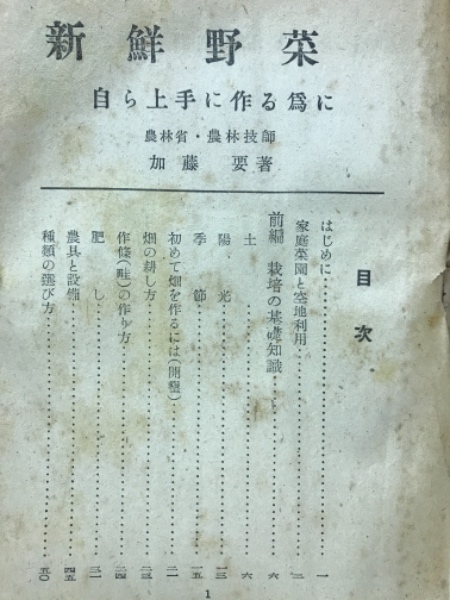 新鮮野菜
自ら上手に作る爲に
農林省・農林技師
加藤 要著
目次
はじめに……一
家庭菜園と空地利用……二
前編 栽培の基礎知識……六
土……六
陽光……一三
季節……一五
初めて畑を作るには(開墾)……二一
畑の耕し方……二三
作條(畦)の作り方……二四
肥し……三一
農具と設備……四五
種類の選び方……五〇
1